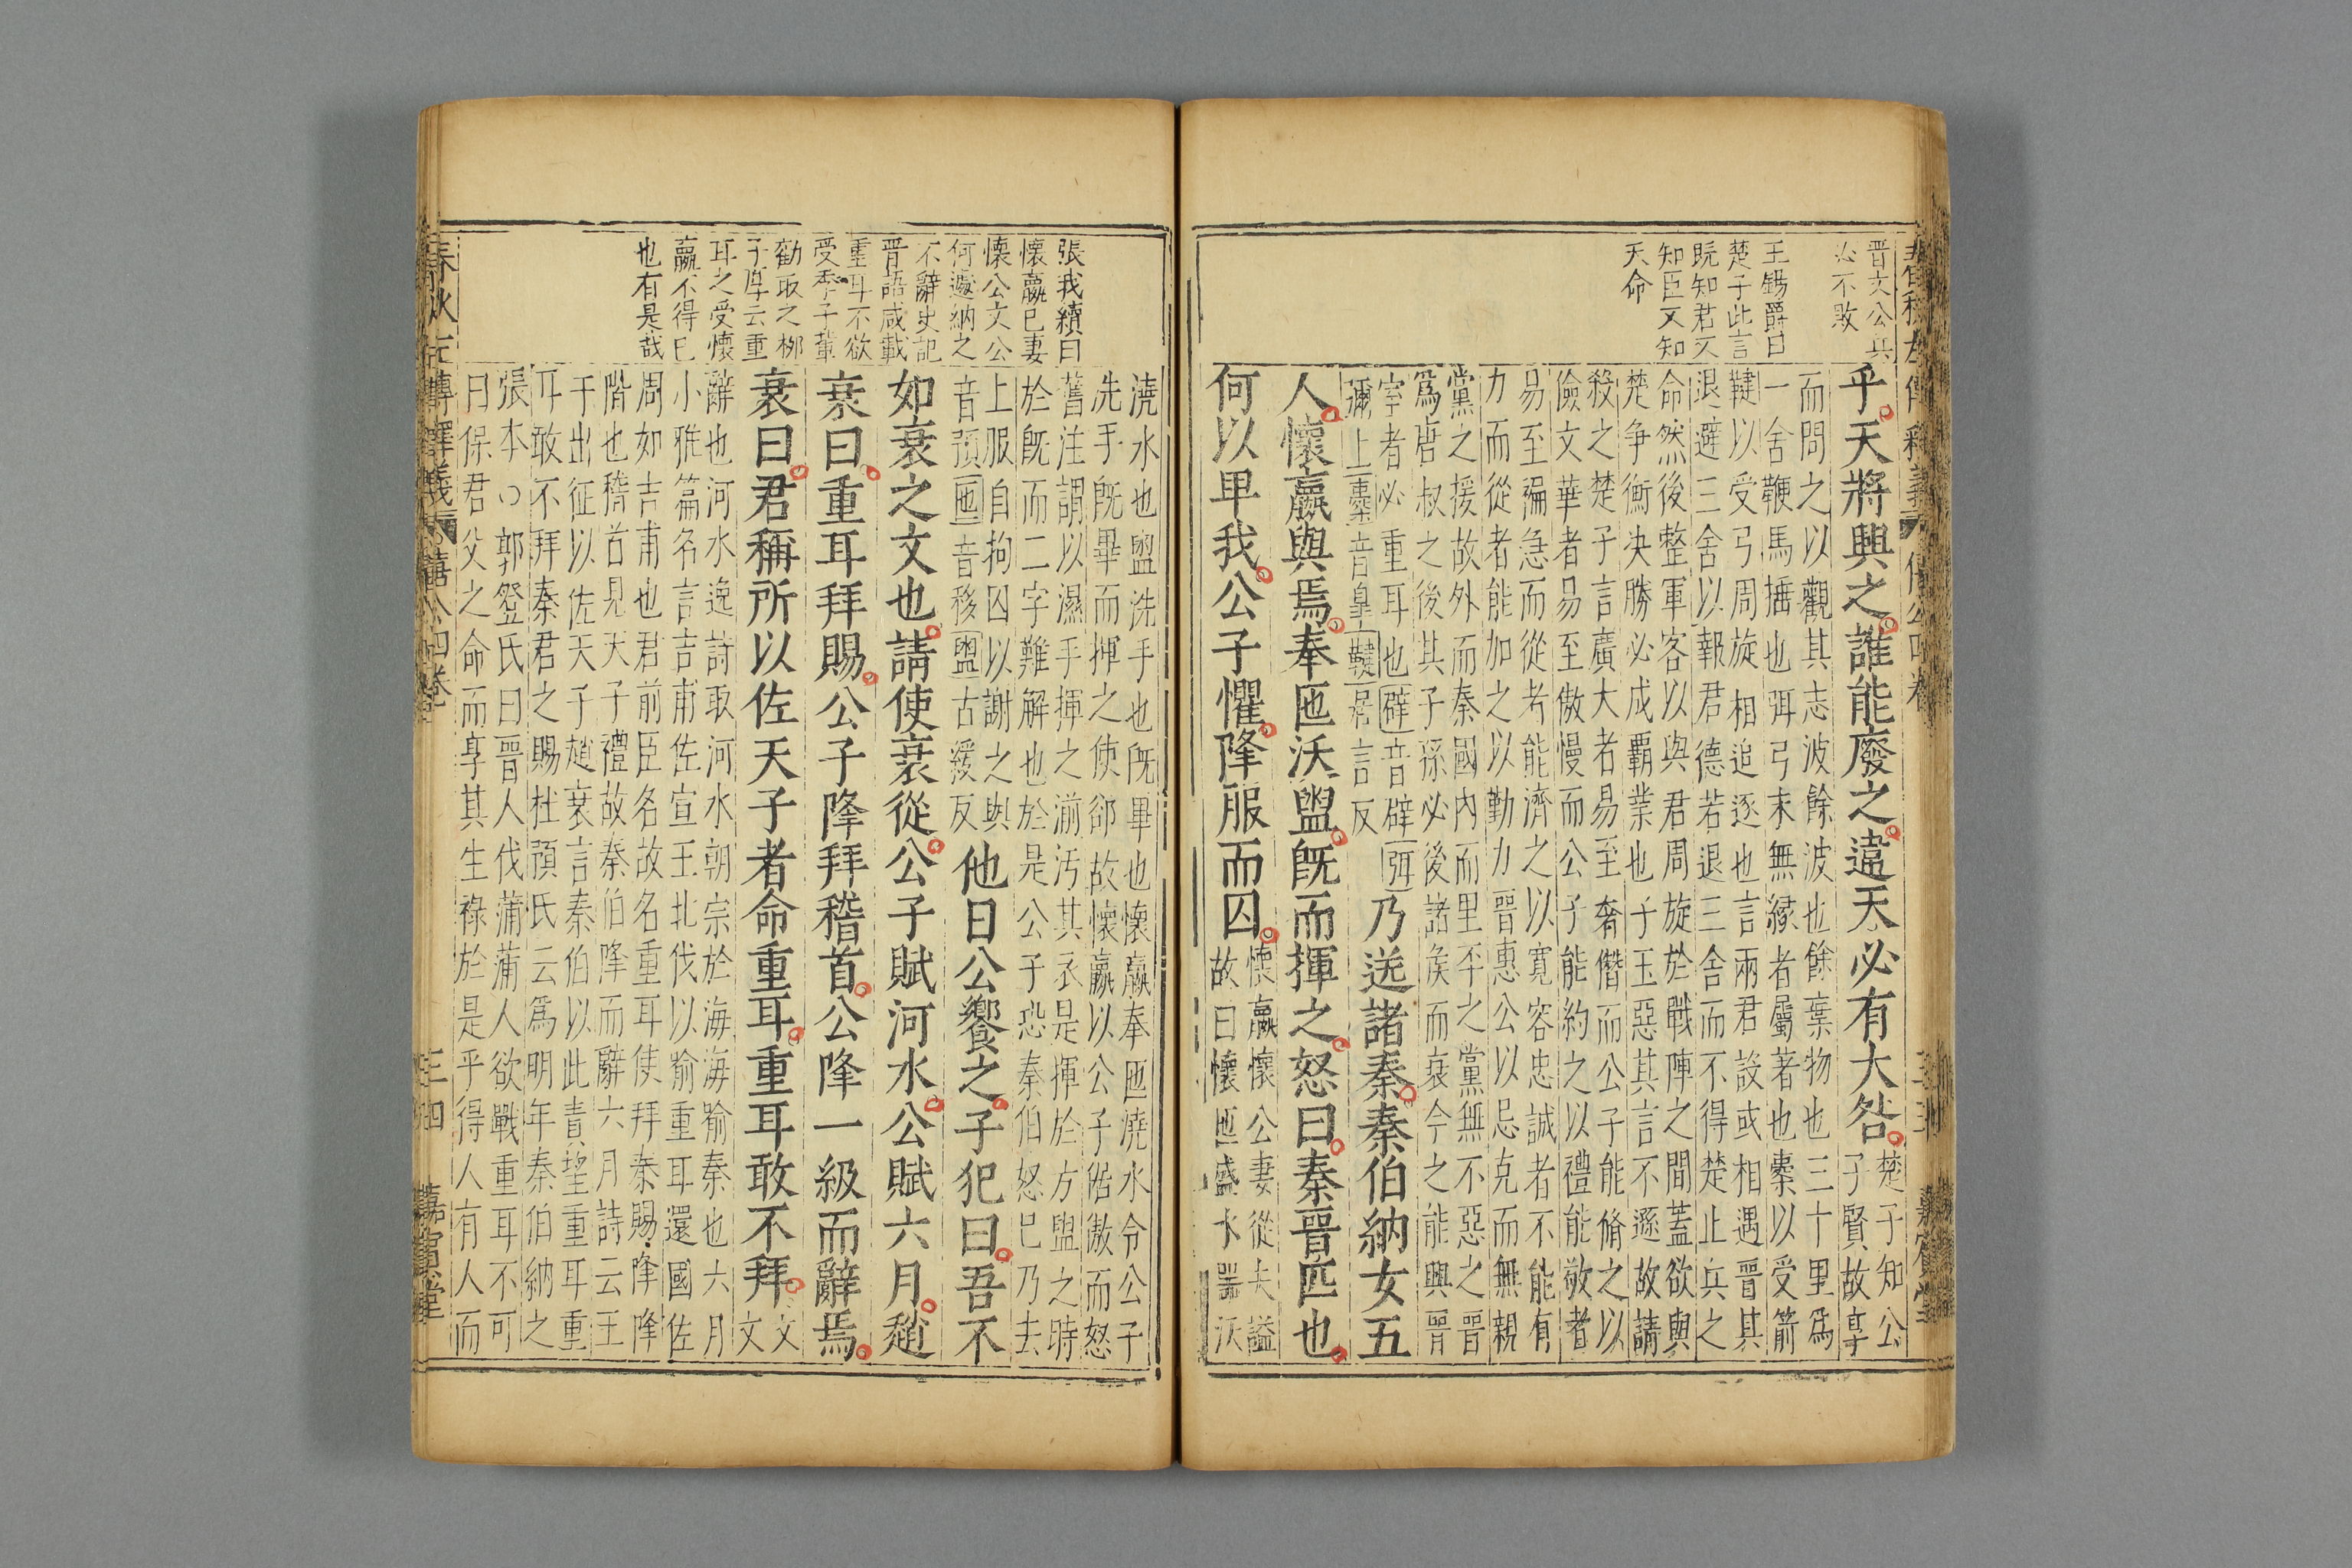 春秋左傳釋義 僖公四卷
晉文公兵
必不敗
王錫爵曰
楚子此言
既知君又
知臣又知
天命
乎天將興之誰能廢之違天必有大咎
楚子知公
子賢故享
而問之以觀其志波餘波也餘棄物也三十里爲
一舍鞭馬捶也弭弓末無縁者屬著也櫜以受箭
鞬以受弓周旋相追逐也言兩君設或相遇晉其
退避三舍以報君德若退三舍而不得楚止兵之
命然後整軍客以與君周旋於戰陣之間蓋欲與
楚争衡决勝必成覇業也子玉惡其言不遜故請
殺之楚子言廣大者易至奢僭而公子能脩之以
儉文華者易至傲慢而公子能約之以禮能敬者
易至褊急而從者能濟之以寛容忠誠者不能有
力而從者能加之以勤力晉惠公以忌克而無親
黨之援故外而秦國内而里丕之黨無不惡之晉
爲唐叔之後其子孫必後諸侯而衰今之能興晉
室者必重耳也辟音辟弭
彌上櫜音皐鞬居言反
乃送諸秦秦伯納女五
人懷嬴與焉奉匜沃盥旣而揮之怒曰秦晉匹也
何以卑我公子懼降服而囚
懷嬴懷公妻從夫謚
故曰懷匜盛水器沃
張我續曰
懷嬴已妻
懷公文公
何遽納之
不辭史記
晉語咸載
重耳不欲
受季子輩
勸取之栁
子厚云重
耳之受懷
嬴不得已
也有是哉
澆水也盥洗手也旣畢也懷嬴奉匜澆水令公子
洗手旣畢而揮之使郤故懷嬴以公子倨傲而怒
舊注謂以濕手揮之湔汚其衣是揮於方盥之時
於旣而二字難解也於是公子恐秦伯怒已乃去
上服自拘囚以謝之與
音預匜音移盥古緩反
他日公饗之子犯曰吾不
如衰之文也請使衰從公子賦河水公賦六月趙
衰曰重耳拜賜公子降拜稽首公降一級而辭焉
衰曰君稱所以佐天子者命重耳重耳敢不拜
文
文
辭也河水逸詩取河水朝宗於海海喻秦也六月
小雅篇名言吉甫佐宣王北伐以喻重耳還國佐
周如吉甫也君前臣名故名重耳使拜秦賜降降
階也稽首見天子禮故秦伯降而辭六月詩云王
于出征以佐天子趙衰言秦伯以此責望重耳重
耳敢不拜秦君之賜杜預氏云爲明年秦伯納之
張本○郭登氏曰晉人伐蒲蒲人欲戰重耳不可
曰保君父之命而享其生祿於是乎得人有人而
春秋左傳釋義 僖公四卷 三四